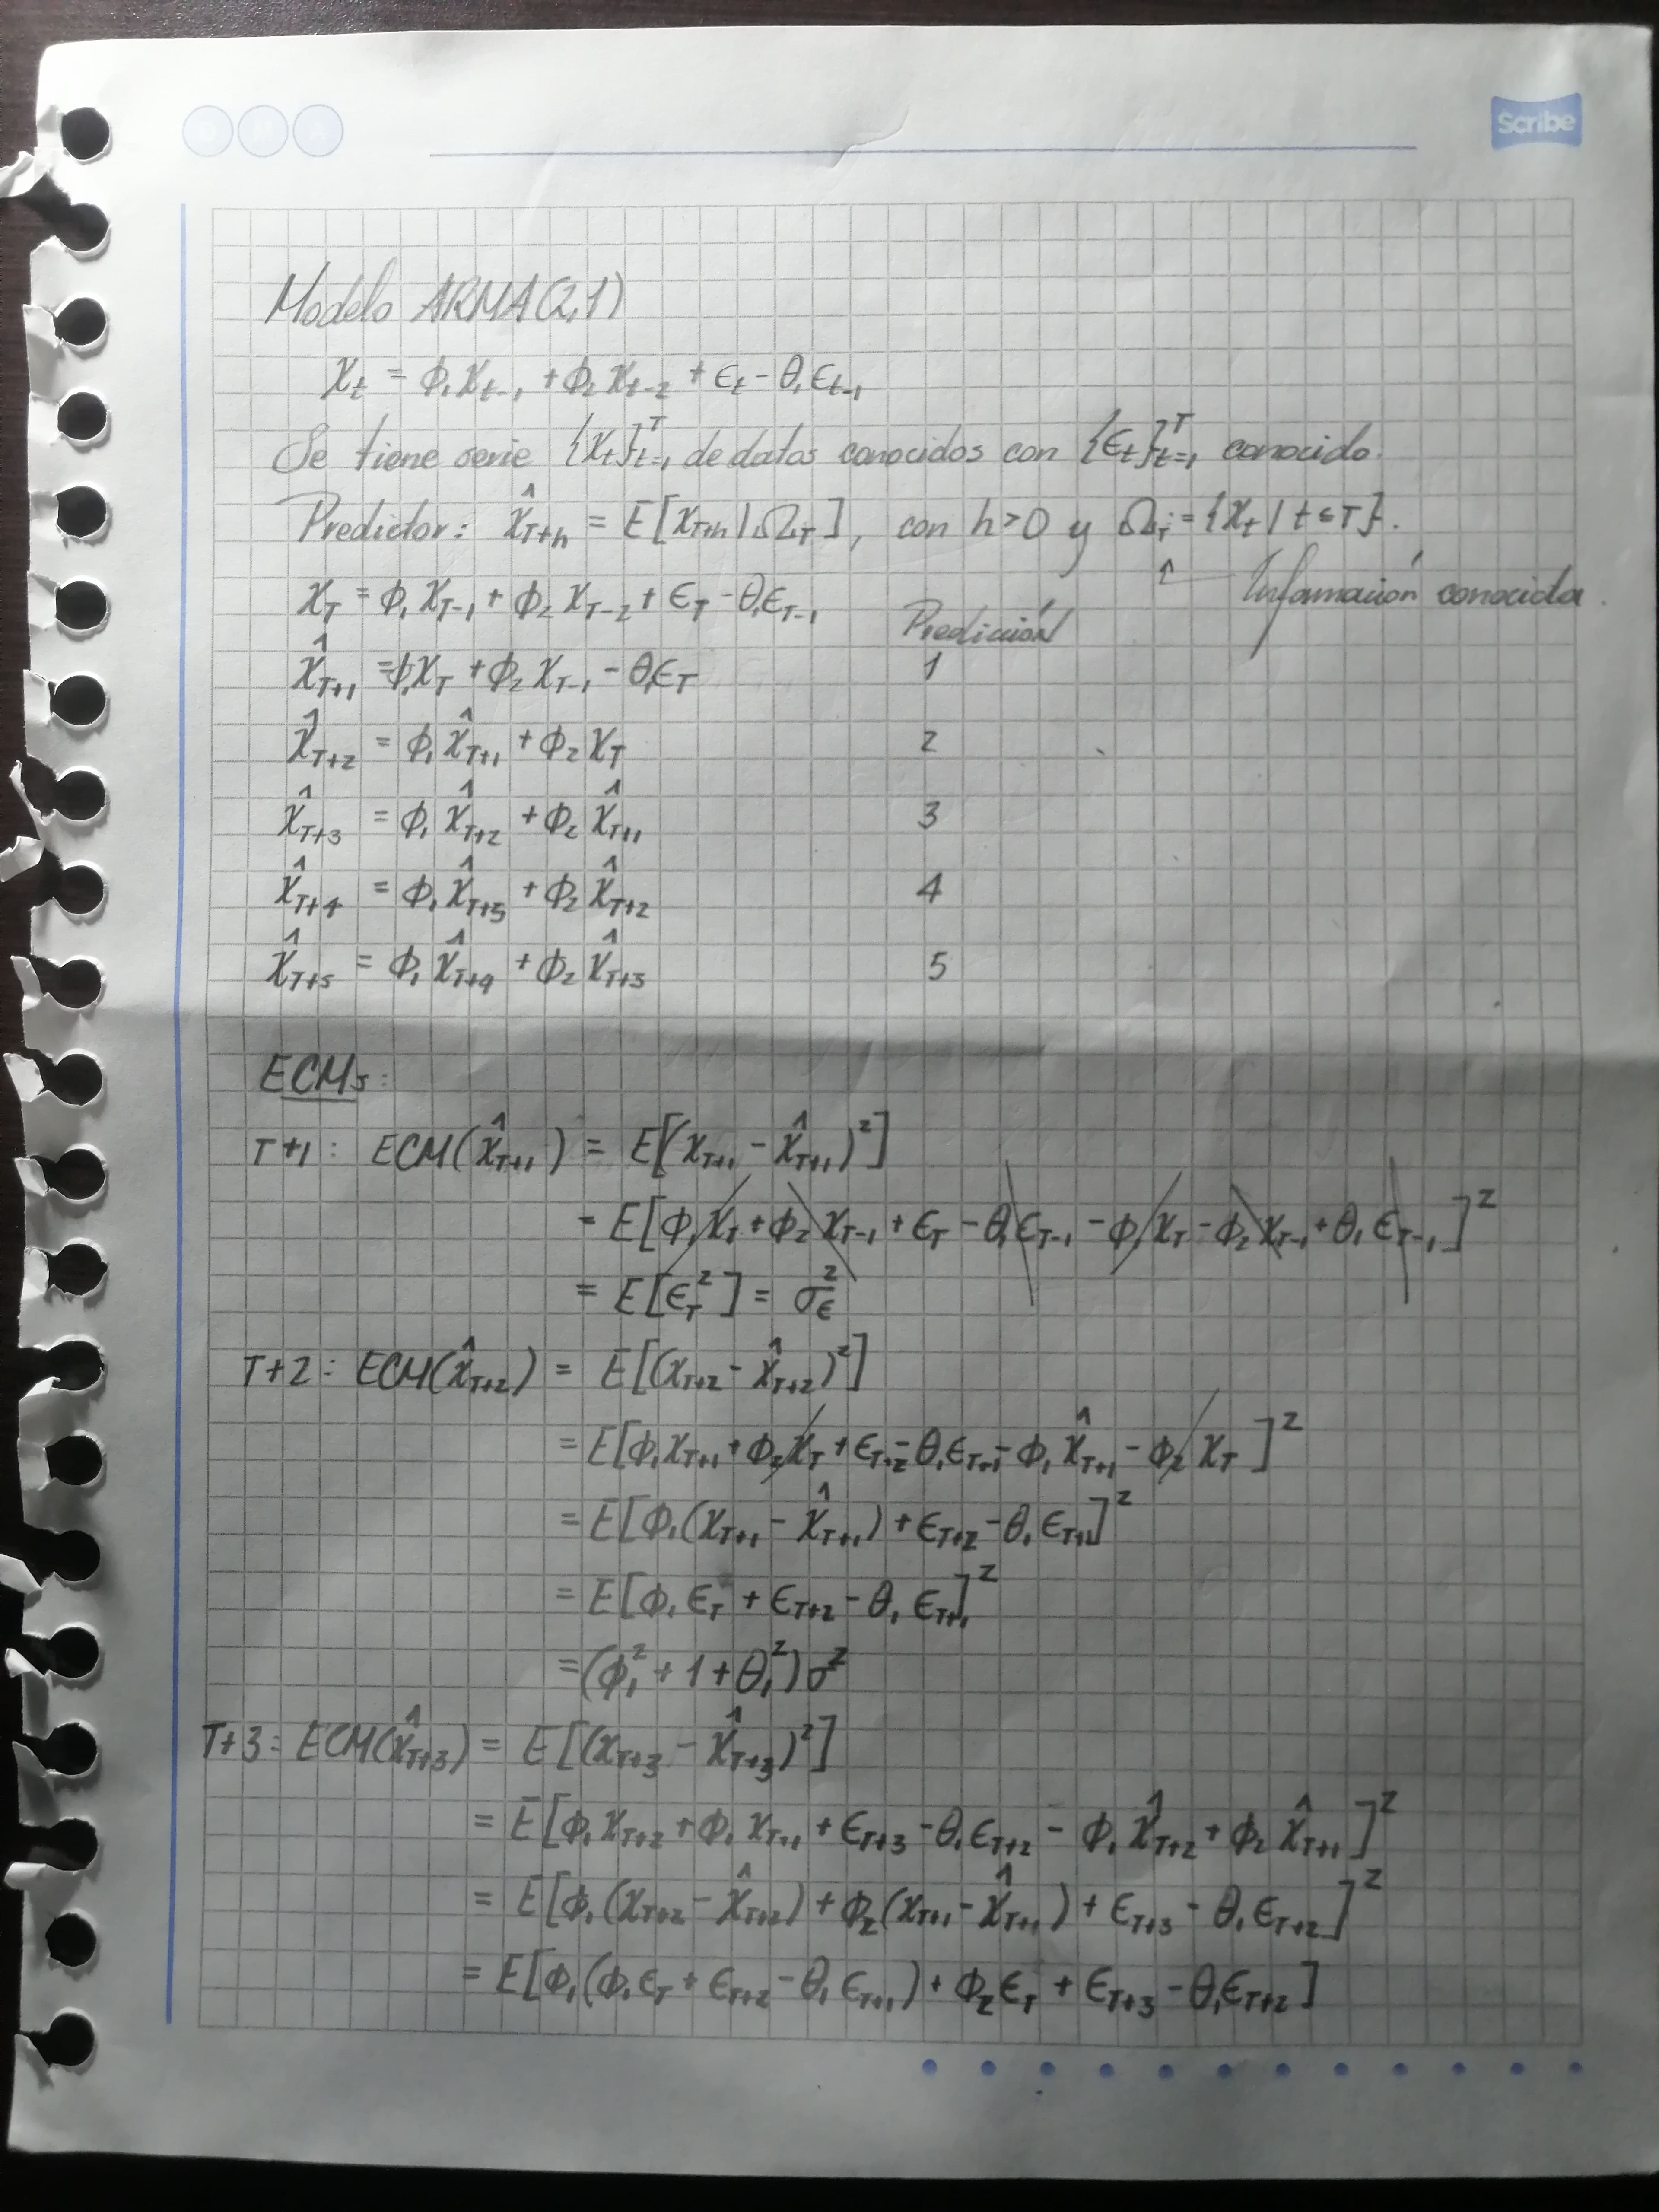 D M A
Scribe
Modelo ARMA(2,1)
χ_t = ϕ₁χ_{t-1} + ϕ₂χ_{t-2} + ϵ_t - θ₁ϵ_{t-1}
Se tiene serie {χ_t}_{t=1}^T de datos conocidos con {ϵ_t}_{t=1}^T conocido.
Predictor: χ̂_{T+h} = E[χ_{T+h}|Ω_T], con h>0 y Ω_T = {χ_t | t≤T}.
↑ Información conocida.
χ_T = ϕ₁χ_{T-1} + ϕ₂χ_{T-2} + ϵ_T - θ₁ϵ_{T-1}
Predicción
χ̂_{T+1} = ϕ₁χ_T + ϕ₂χ_{T-1} - θ₁ϵ_T 1
χ̂_{T+2} = ϕ₁χ̂_{T+1} + ϕ₂χ_T 2
χ̂_{T+3} = ϕ₁χ̂_{T+2} + ϕ₂χ̂_{T+1} 3
χ̂_{T+4} = ϕ₁χ̂_{T+3} + ϕ₂χ̂_{T+2} 4
χ̂_{T+5} = ϕ₁χ̂_{T+4} + ϕ₂χ̂_{T+3} 5
ECMs:
T+1: ECM(χ̂_{T+1}) = E[(χ_{T+1} - χ̂_{T+1})²]
= E[ϕ₁χ_T + ϕ₂χ_{T-1} + ϵ_T - θ₁ϵ_{T-1} - ϕ₁χ_T - ϕ₂χ_{T-1} + θ₁ϵ_{T-1}]²
= E[ϵ_T²] = σ_ϵ²
T+2: ECM(χ̂_{T+2}) = E[(χ_{T+2} - χ̂_{T+2})²]
= E[ϕ₁χ_{T+1} + ϕ₂χ_T + ϵ_{T+2} - θ₁ϵ_{T+1} - ϕ₁χ̂_{T+1} - ϕ₂χ_T]²
= E[ϕ₁(χ_{T+1} - χ̂_{T+1}) + ϵ_{T+2} - θ₁ϵ_{T+1}]²
= E[ϕ₁ϵ_T + ϵ_{T+2} - θ₁ϵ_{T+1}]²
= (ϕ₁² + 1 + θ₁²)σ²
T+3: ECM(χ̂_{T+3}) = E[(χ_{T+3} - χ̂_{T+3})²]
= E[ϕ₁χ_{T+2} + ϕ₁χ_{T+1} + ϵ_{T+3} - θ₁ϵ_{T+2} - ϕ₁χ̂_{T+2} + ϕ₂χ̂_{T+1}]²
= E[ϕ₁(χ_{T+2} - χ̂_{T+2}) + ϕ₂(χ_{T+1} - χ̂_{T+1}) + ϵ_{T+3} - θ₁ϵ_{T+2}]²
= E[ϕ₁(ϕ₁ϵ_T + ϵ_{T+2} - θ₁ϵ_{T+1}) + ϕ₂ϵ_T + ϵ_{T+3} - θ₁ϵ_{T+2}]